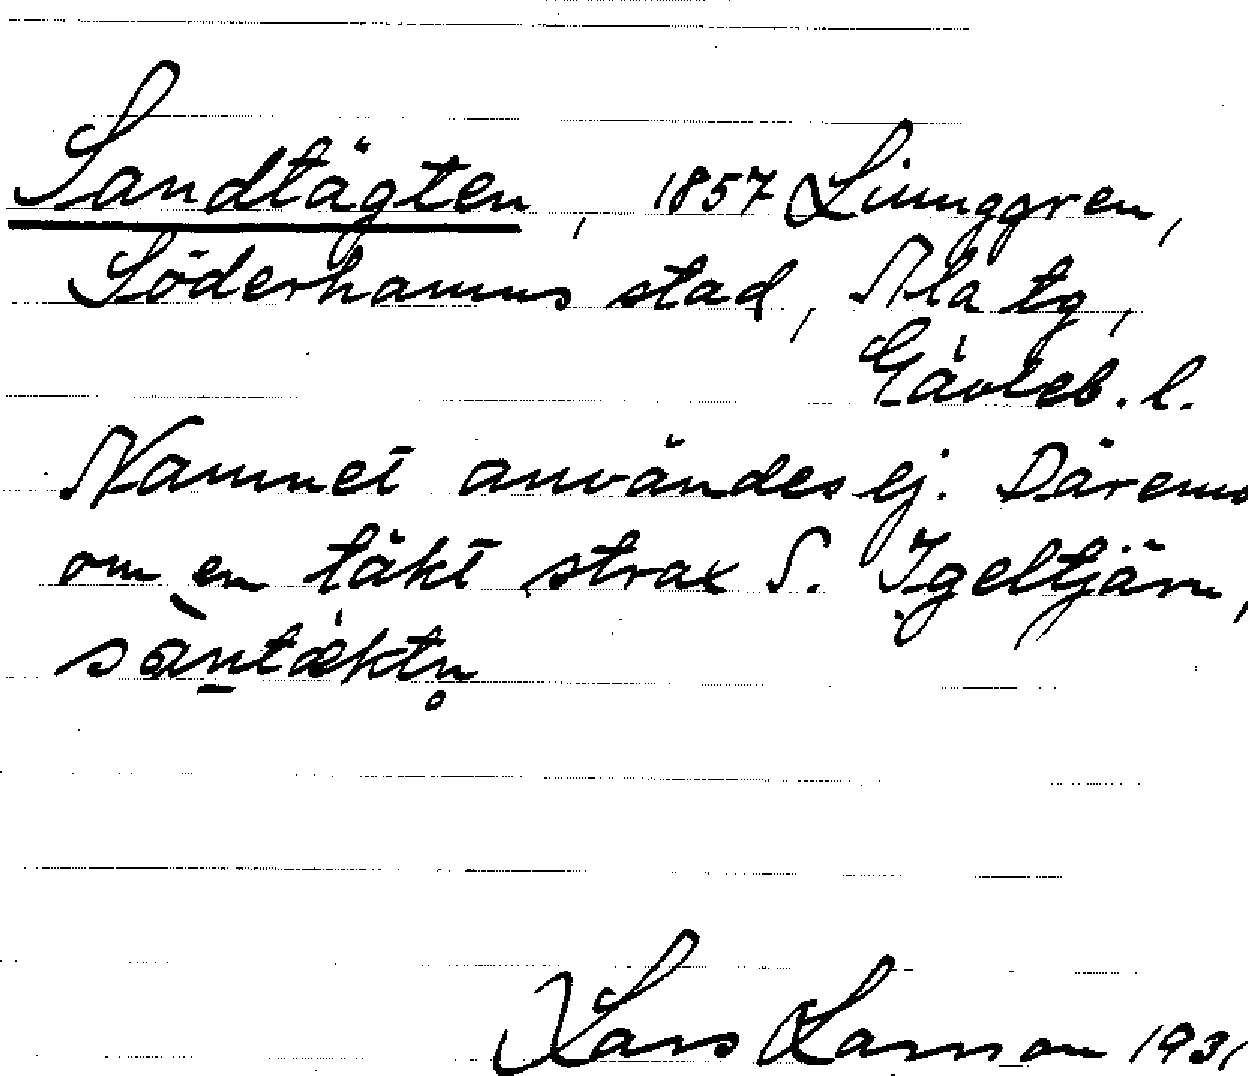 Sandtägten, 1857 Liunggren,
Söderhamns stad, Ala tg,
Gävleb. l.
Namnet användes ej. Däremo
om en täkt strax S. Igeltjärn,
Lars Larsson 1931